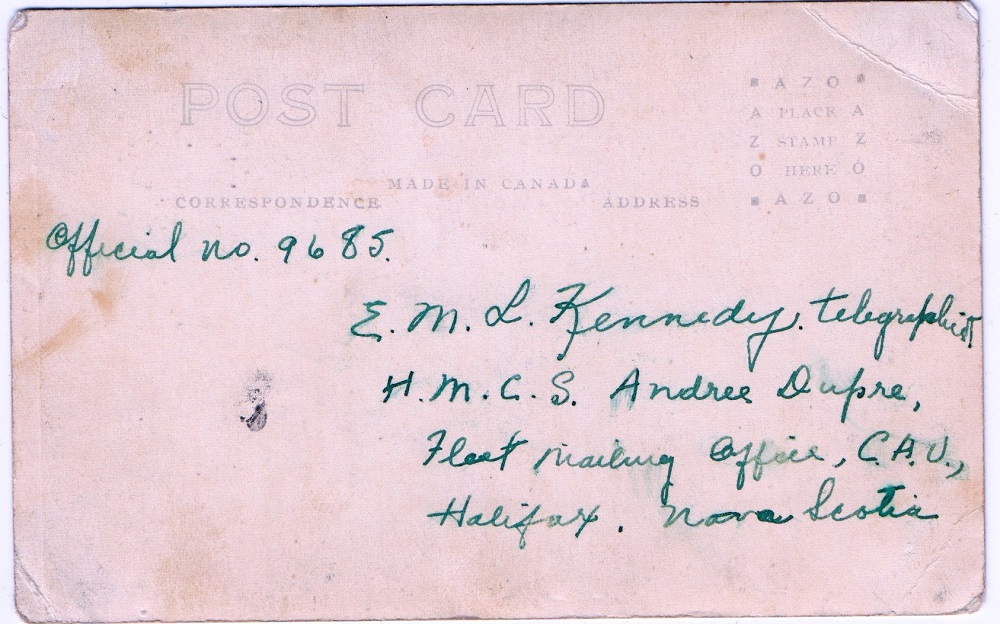 POST CARD
AZO
A PLACE A
Z STAMP Z
O HERE O
AZO
MADE IN CANADA
CORRESPONDENCE
ADDRESS
Official no. 9685.
E. M. L. Kennedy. telegraphist,
H.M.C.S. Andree Dupre,
Fleet Mailing Office, C.A.U.,
Halifax. Nova Scotia